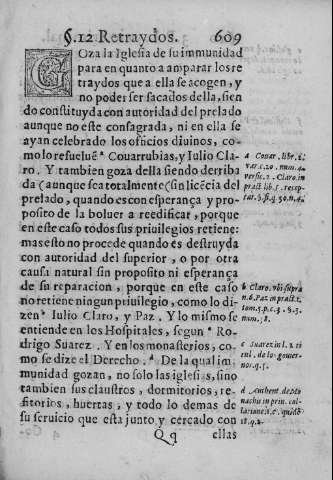 §.12 Retraydos. 609
Goza la Iglesia de su immunidad
para en quanto a amparar los re
traydos que a ella se acogen, y
no poder ser sacados della, sien
do constituyda con autoridad del prelado
aunque no este consagrada, ni en ella se
ayan celebrado los oficios diuinos, co-
mo lo resuelue ᵃ Couarrubias, y Iulio Cla-
ro. Y tambien goza della siendo derriba
da (aunque sea totalmente (sin licẽcia del
prelado, quando es con esperança y pro-
posito de la boluer a reedificar, porque
en este caso todos sus priuilegios retiene:
mas esto no procede quando es destruyda
con autoridad del superior, o por otra
causa natural sin proposito ni esperança
de su reparacion, porque en este caso
no retiene ningun priuilegio, como lo di-
zen ᵇ Iulio Claro, y Paz. Y lo mismo se
entiende en los Hospitales, segun ᶜ Ro-
drigo Suarez. Y en los monasterios, co-
mo se dize el Derecho. ᵈ De la qual im-
munidad gozan, no solo las iglesias, sino
tambien sus claustros, dormitorios, re-
fitorios, huertas, y todo lo demas de
su seruicio que esta junto y cercado con
Qq ellas
a Couar. libr. 2.
var. c. 20. num. 4.
versic. 2. Claro in
pract. lib. 5. recep-
tar. §. fi. q. 30. n. 4.
b Claro. vbi supra
n. 6. Paz in pract. t.
tom. 5. p. c. 3. §. 3.
num. 18.
c Suarez in l. 2. ti
tul. de los gouer-
nor. q. 5.
d Authent. de Mo
nachis in prin. col-